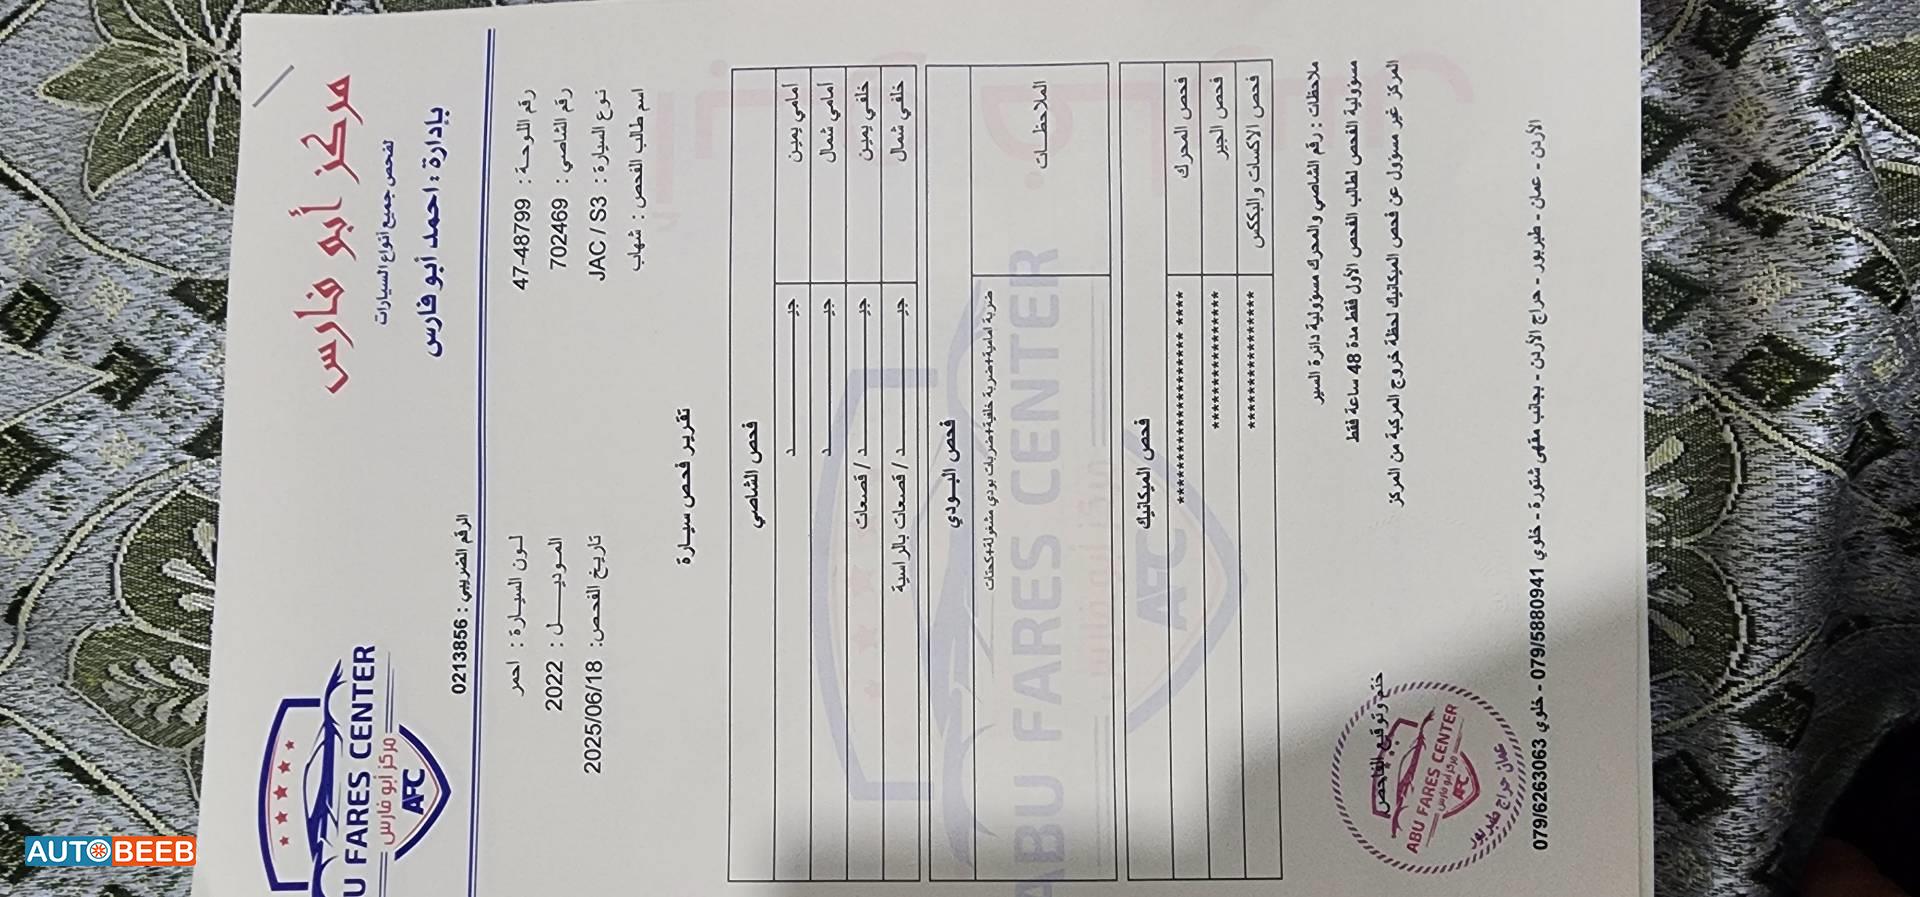 مركز أبو فارس
لفحص جميع أنواع السيارات
بإدارة : احمد أبو فارس
ABU FARES CENTER
مركز أبو فارس
AFC
الرقم الضريبي : 0213856
رقم اللوحة : 47-48799
لـون السيـارة : احمر
رقم الشاصي : 702469
الموديــــل : 2022
نوع السيارة : JAC / S3
تاريخ الفحص: 2025/06/18
اسم طالب الفحص : شهاب
تقرير فحص سيـارة
فحص الشاصي
أمامي يمين جيــــــــــــــد
أمامي شمال جيــــــــــــــد
خلفي يمين جيــــــــــــــد / قصعات
خلفي شمال جيــــــــــــــد / قصعات بالراسية
فحص البـودي
الملاحظـــات
ضربة امامية+ضربة خلفية+ضربات بودي مشغولة+كحتات
ABU FARES CENTER
مركز أبو فارس
AFC
فحص الميكانيك
فحص المحرك **** **********************
فحص الجير ******************
فحص الاكسات و البككس ******************
ملاحظات : رقم الشاصي والمحرك مسؤولية دائرة السير
مسؤولية الفحص لطالب الفحص الأول فقط مدة 48 ساعة فقط
المركز غير مسؤول عن فحص الميكانيك لحظة خروج المركبة من المركز
ختم وتوقيع الفاحص
ABU FARES CENTER
مركز أبو فارس
AFC
عمان حراج طبربور
الأردن - عمان - طبربور - حراج الأردن - بجانب مقهى شتورة - خلوي 079/5880941 - خلوي 079/6263063
AUTOBEEB